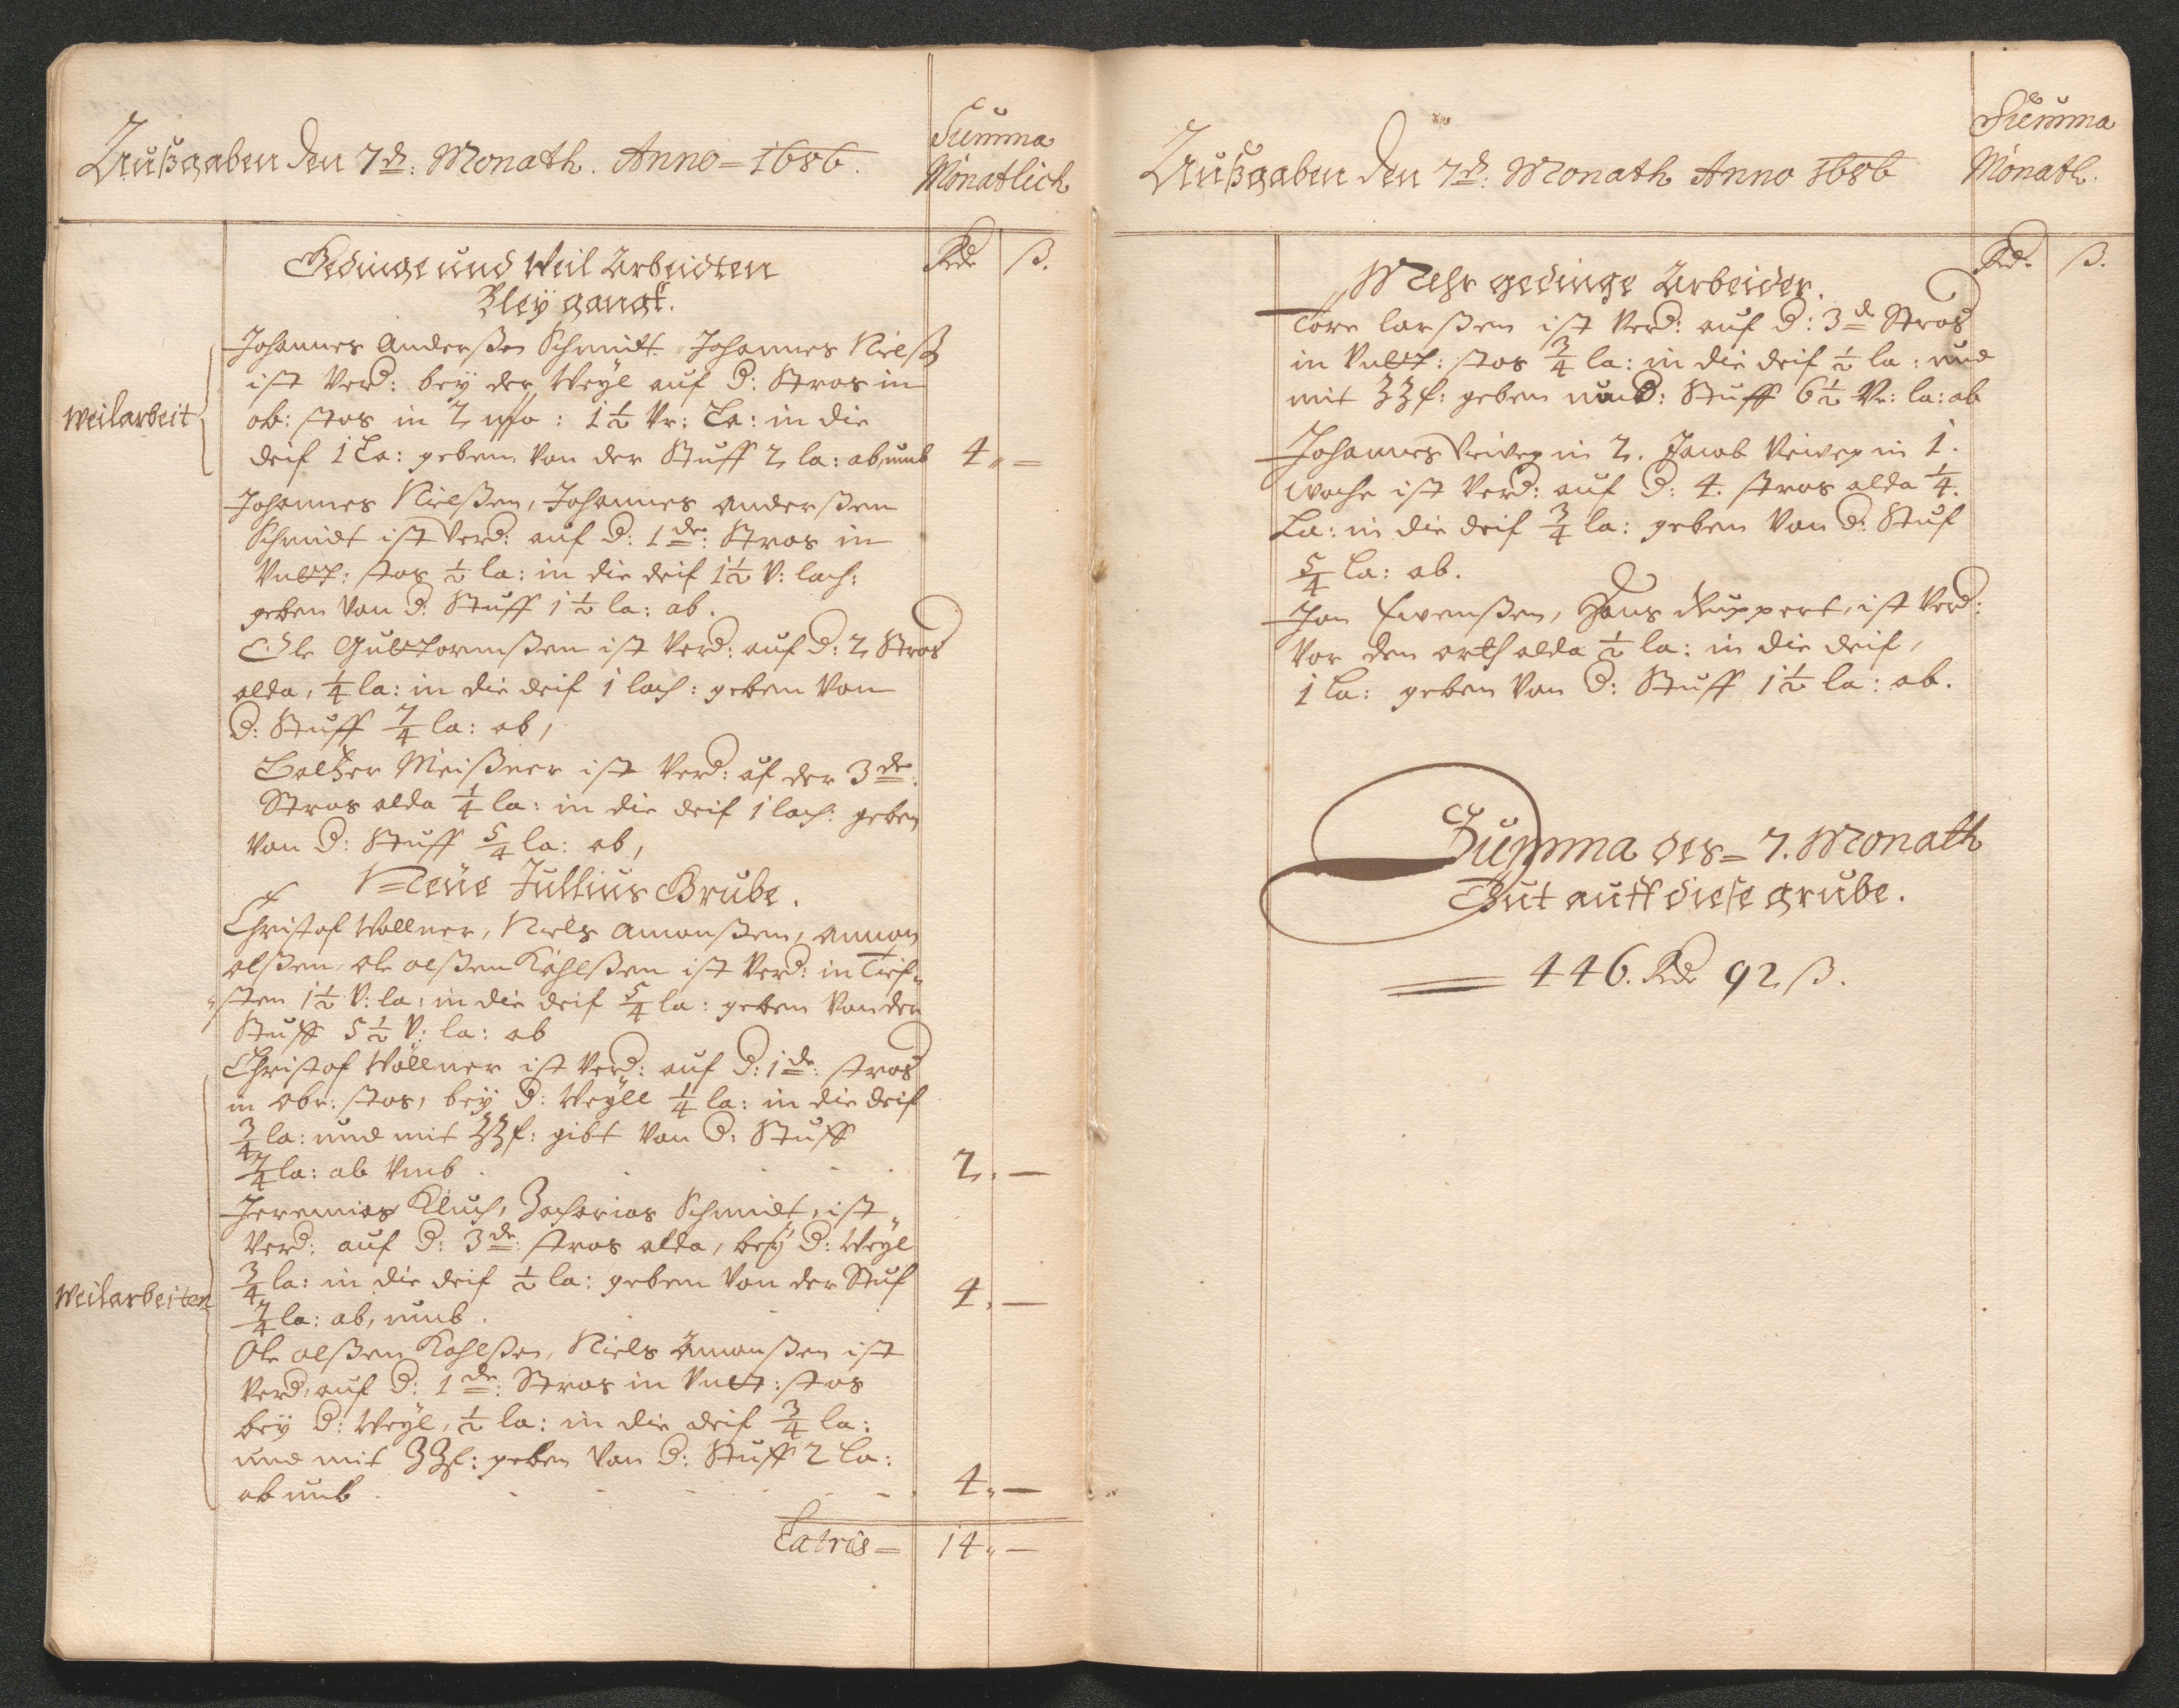 Außgaben den 7de: Monath. Anno = 1686.
Summa
Monatlich
Rdr ß.
Gedinge und Weil Arbeidten
Bleÿ gangk.
Weilarbeit
Johannes Anderßen Schmidt Johannes Nielß
ist Verd: beÿ der Weÿl auf d: Stros in
ob: stos in 2 : 1½ Vr: La: in die
deif 1 La: geben Von der Stuff 2 la: ab, umb 4 " =
Johannes Nielßen, Johannes Anderßen
Schmidt ist Verd: auf d: 1de: Stros in
Unt: stos ½ la: in die deif 1½ V: lach:
geben Von d: Stuff 1½ la: ab.
Ole Guttormßen ist Verd: auf d: 2 Stros
alda, ¼ la: in die deif 1 lach: geben Von
d: Stuff 7/4 la: ab,
Baltzer Meißner ist Verd: uf der 3de:
Stros alda ¼ la: in die deif 1 lach: geben
Von d: Stuff 5/4 la: ab,
Neüe Jullius Grube.
Christof Wollner, Niels Amonßen, Ammon
olßen, ole olßen Kohlßen ist Verd: in Tief-
sten 1½ V: la: in die deif 5/4 la: geben Von der
Stuff 5½ V: la: ab
Christof Wöllner ist Verd: auf d: 1de: stros
in obr: stos, beÿ d: Weÿll ¼ la: in die deif
¾ la: und mit ZZf: gibt Von d: Stuff
7/4 la: ab Umb . . . . 2. —
Weilarbeiten
Jeremias Kluch, Zacharias Schmidt, ist
Verd: auf d: 3de: stros alda, beÿ d: Weÿl
¾ la: in die deif ½ la: geben Von der Stuf
7/4 la: ab, umb . . 4. —
Ole olßen Kohlßen, Niels Amonßen ist
Verd: auf d: 1de: Stros in Unt: stos
beÿ d: Weÿl, ½ la: in die deif ¾ la:
und mit ZZf: geben Von d: Stuff 2 La:
ab umb . . . . 4. —
Latris = 14 " —
Außgaben den 7de: Monath Anno 1686
Summa
Monatl.
Rdr. ß.
Mehr gedinge Arbeider.
Tore larßen ist Verd: auf d: 3de Stros
in Unt: stos ¾ la: in die deif ½ la: und
mit ZZf: geben Von d: Stuff 6½ Vr: la: ab
Johannes in 2. Jacob in 1.
woche ist Verd: auf d: 4. stros alda ¼.
La: in die deif ¾ la: geben Von d: Stuf
5/4 La: ab.
Jon Evenßen, Hans Ruppert, ist Verd:
Vor den orth alda ½ la: in die deif,
1 La: geben Von d: Stuff 1½ la: ab.
Summa des = 7. Monath
Gut auff diese grube.
= 446. Rdr 92 ß.